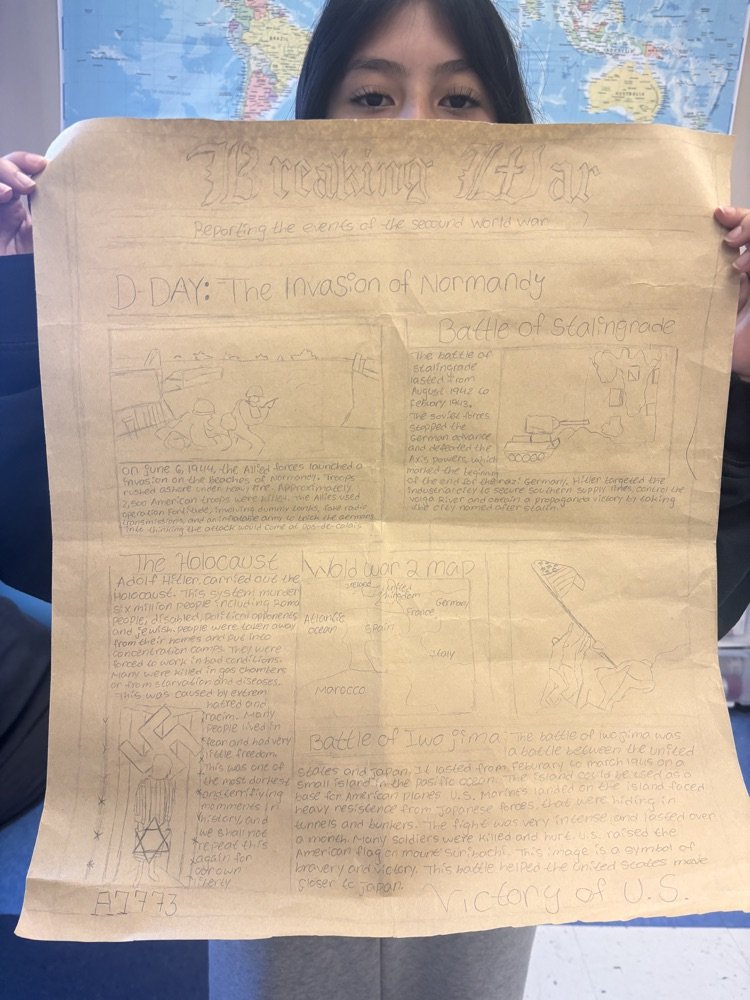 BRAZIL
AUSTRALIA
Breaking War
Reporting the events of the secound world war
D-DAY: The Invasion of Normandy
on june 6, 1944, the Allied forces launched a
invasion on the beaches of Normandy. Troops
rushed ashore under heavy fire. Approximately
2,500 American troops were killed. The Allies used
operation Fortitude, involving dummy tanks, fake radio
transmissions, and an inflatable army to trick the germans
into thinking the attack would come at Pas-de-Calais.
Battle of Stalingrade
The battle of
Stalingrade
lasted from
August 1942 to
Febuary 1943.
The soviet forces
stopped the
German advance
and defeated the
Ax's powers, which
marked the beginning
of the end for the nazi Germany. Hitler targeted the
industrial city to secure southern supply lines, control the
volga River and obtain a propaganda victory by taking
the city named after Stalin.
The Holocaust
Adolf Hitler carried out the
Holocaust. This system murder
six million people including Roma
people, disabled, political opponents
and jewish. People were taken away
from their homes and put into
concentration camps. They were
forced to work in bad conditions.
Many were killed in gas chambers
or from starvation and diseases.
This was caused by extrem
hatred and
racim. Many
people lived in
fear and had very
little freedom.
This was one of
the most darkest
and terrifying
momments in
history, and
we shall not
repeat this
again for
our own
liberty.
A1773
Wold war 2 map
ireland
united
kingdom
Germany
France
Atlantic
ocean
Spain
Italy
Marocco
Battle of Iwo jima
The battle of iwo jima was
a battle between the united
states and japan. It lasted from Feburary to march 1945 on a
small island in the pasific ocean. The island could be used as a
base for American planes. U.S. Marines landed on the island faced
heavy resistence from japanese forces, that were hiding in
tunnels and bunkers. The fight was very intense and lasted over
a month. Many soldiers were killed and hurt. U.S. raised the
American flag on mount suribachi. This image is a symbol of
bravery and victory. This battle helped the United States move
closer to japan.
Victory of U.S.